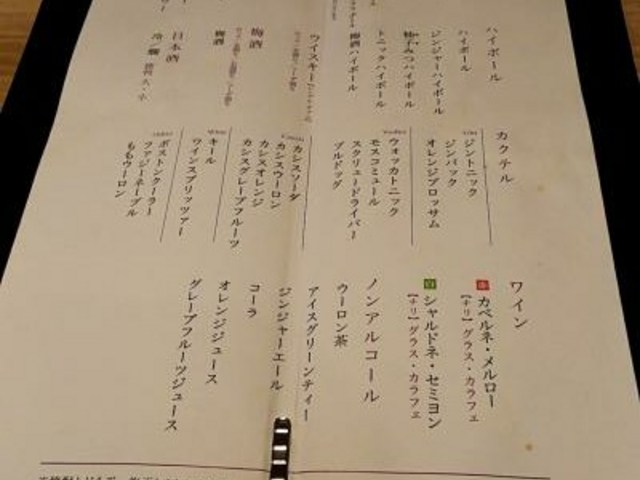 ハイボール
ハイボール
ジンジャーハイボール
柚子みつハイボール
トニックハイボール
梅酒ハイボール
ウイスキー
梅酒
梅酒
日本酒
冷・燗
カクテル
Gin
ジントニック
ジンバック
オレンジブロッサム
Vodka
ウォッカトニック
モスコミュール
スクリュードライバー
ブルドッグ
Cassis
カシスソーダ
カシスウーロン
カシスオレンジ
カシスグレープフルーツ
Wine
キール
ワインスプリッツァー
Other
ボストンクーラー
ファジーネーブル
ももウーロン
ワイン
赤 カベルネ・メルロー
【チリ】グラス・カラフェ
白 シャルドネ・セミヨン
【チリ】グラス・カラフェ
ノンアルコール
ウーロン茶
アイスグリーンティー
ジンジャーエール
コーラ
オレンジジュース
グレープフルーツジュース